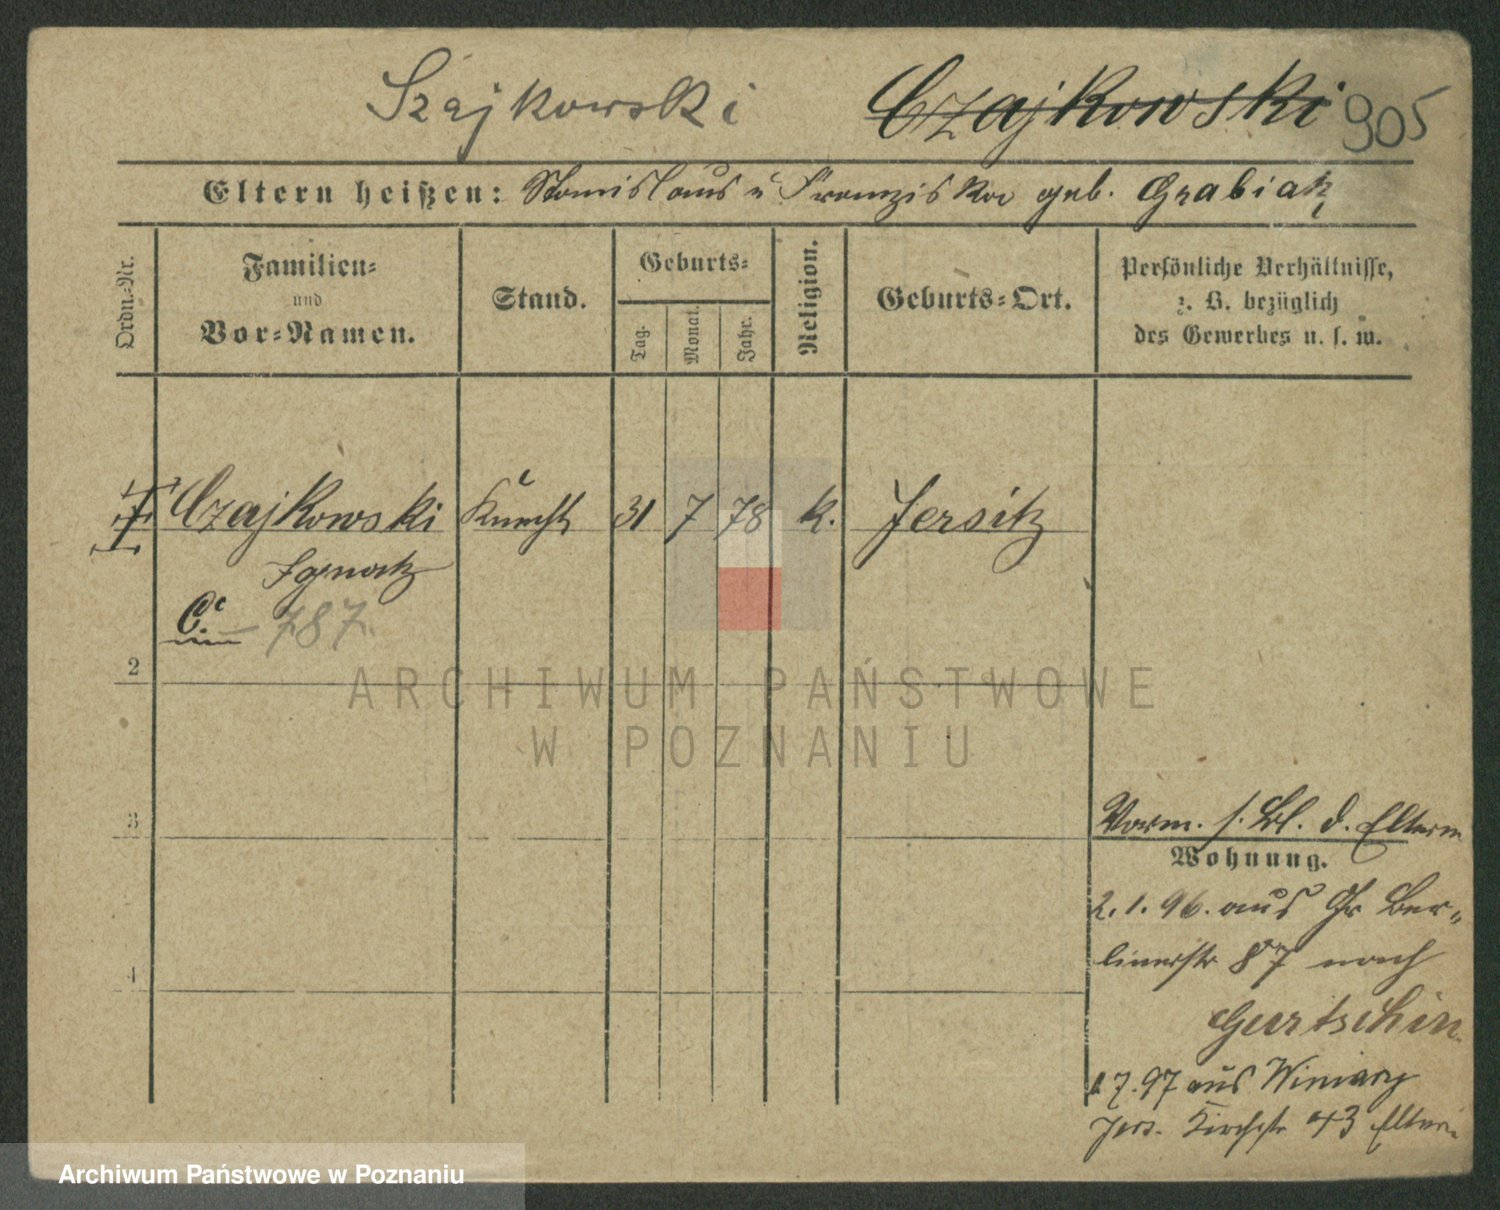 Szajkowski Czajkowski 905
Eltern heißen: Stanislaus u Franziska geb. Grabiak
Ordn.-Nr.
Familien-
und
Vor-Namen.
Stand.
Geburts-
Tag.
Monat.
Jahr.
Religion.
Geburts-Ort.
Persönliche Verhältnisse,
z. B. bezüglich
des Gewerbes u. s. w.
Czajkowski Knecht 31 7 78 k. Jersitz
Ignatz
787.
2
3
4
Vorm. s. Bl. d. Eltern
Wohnung.
2.1.96. aus Gr Ber-
linerstr 87 nach
Gurtschin
1 7.97 aus Winiary
Jers. Kirchstr 43 Eltern
ARCHIWUM PAŃSTWOWE
W POZNANIU
Archiwum Państwowe w Poznaniu